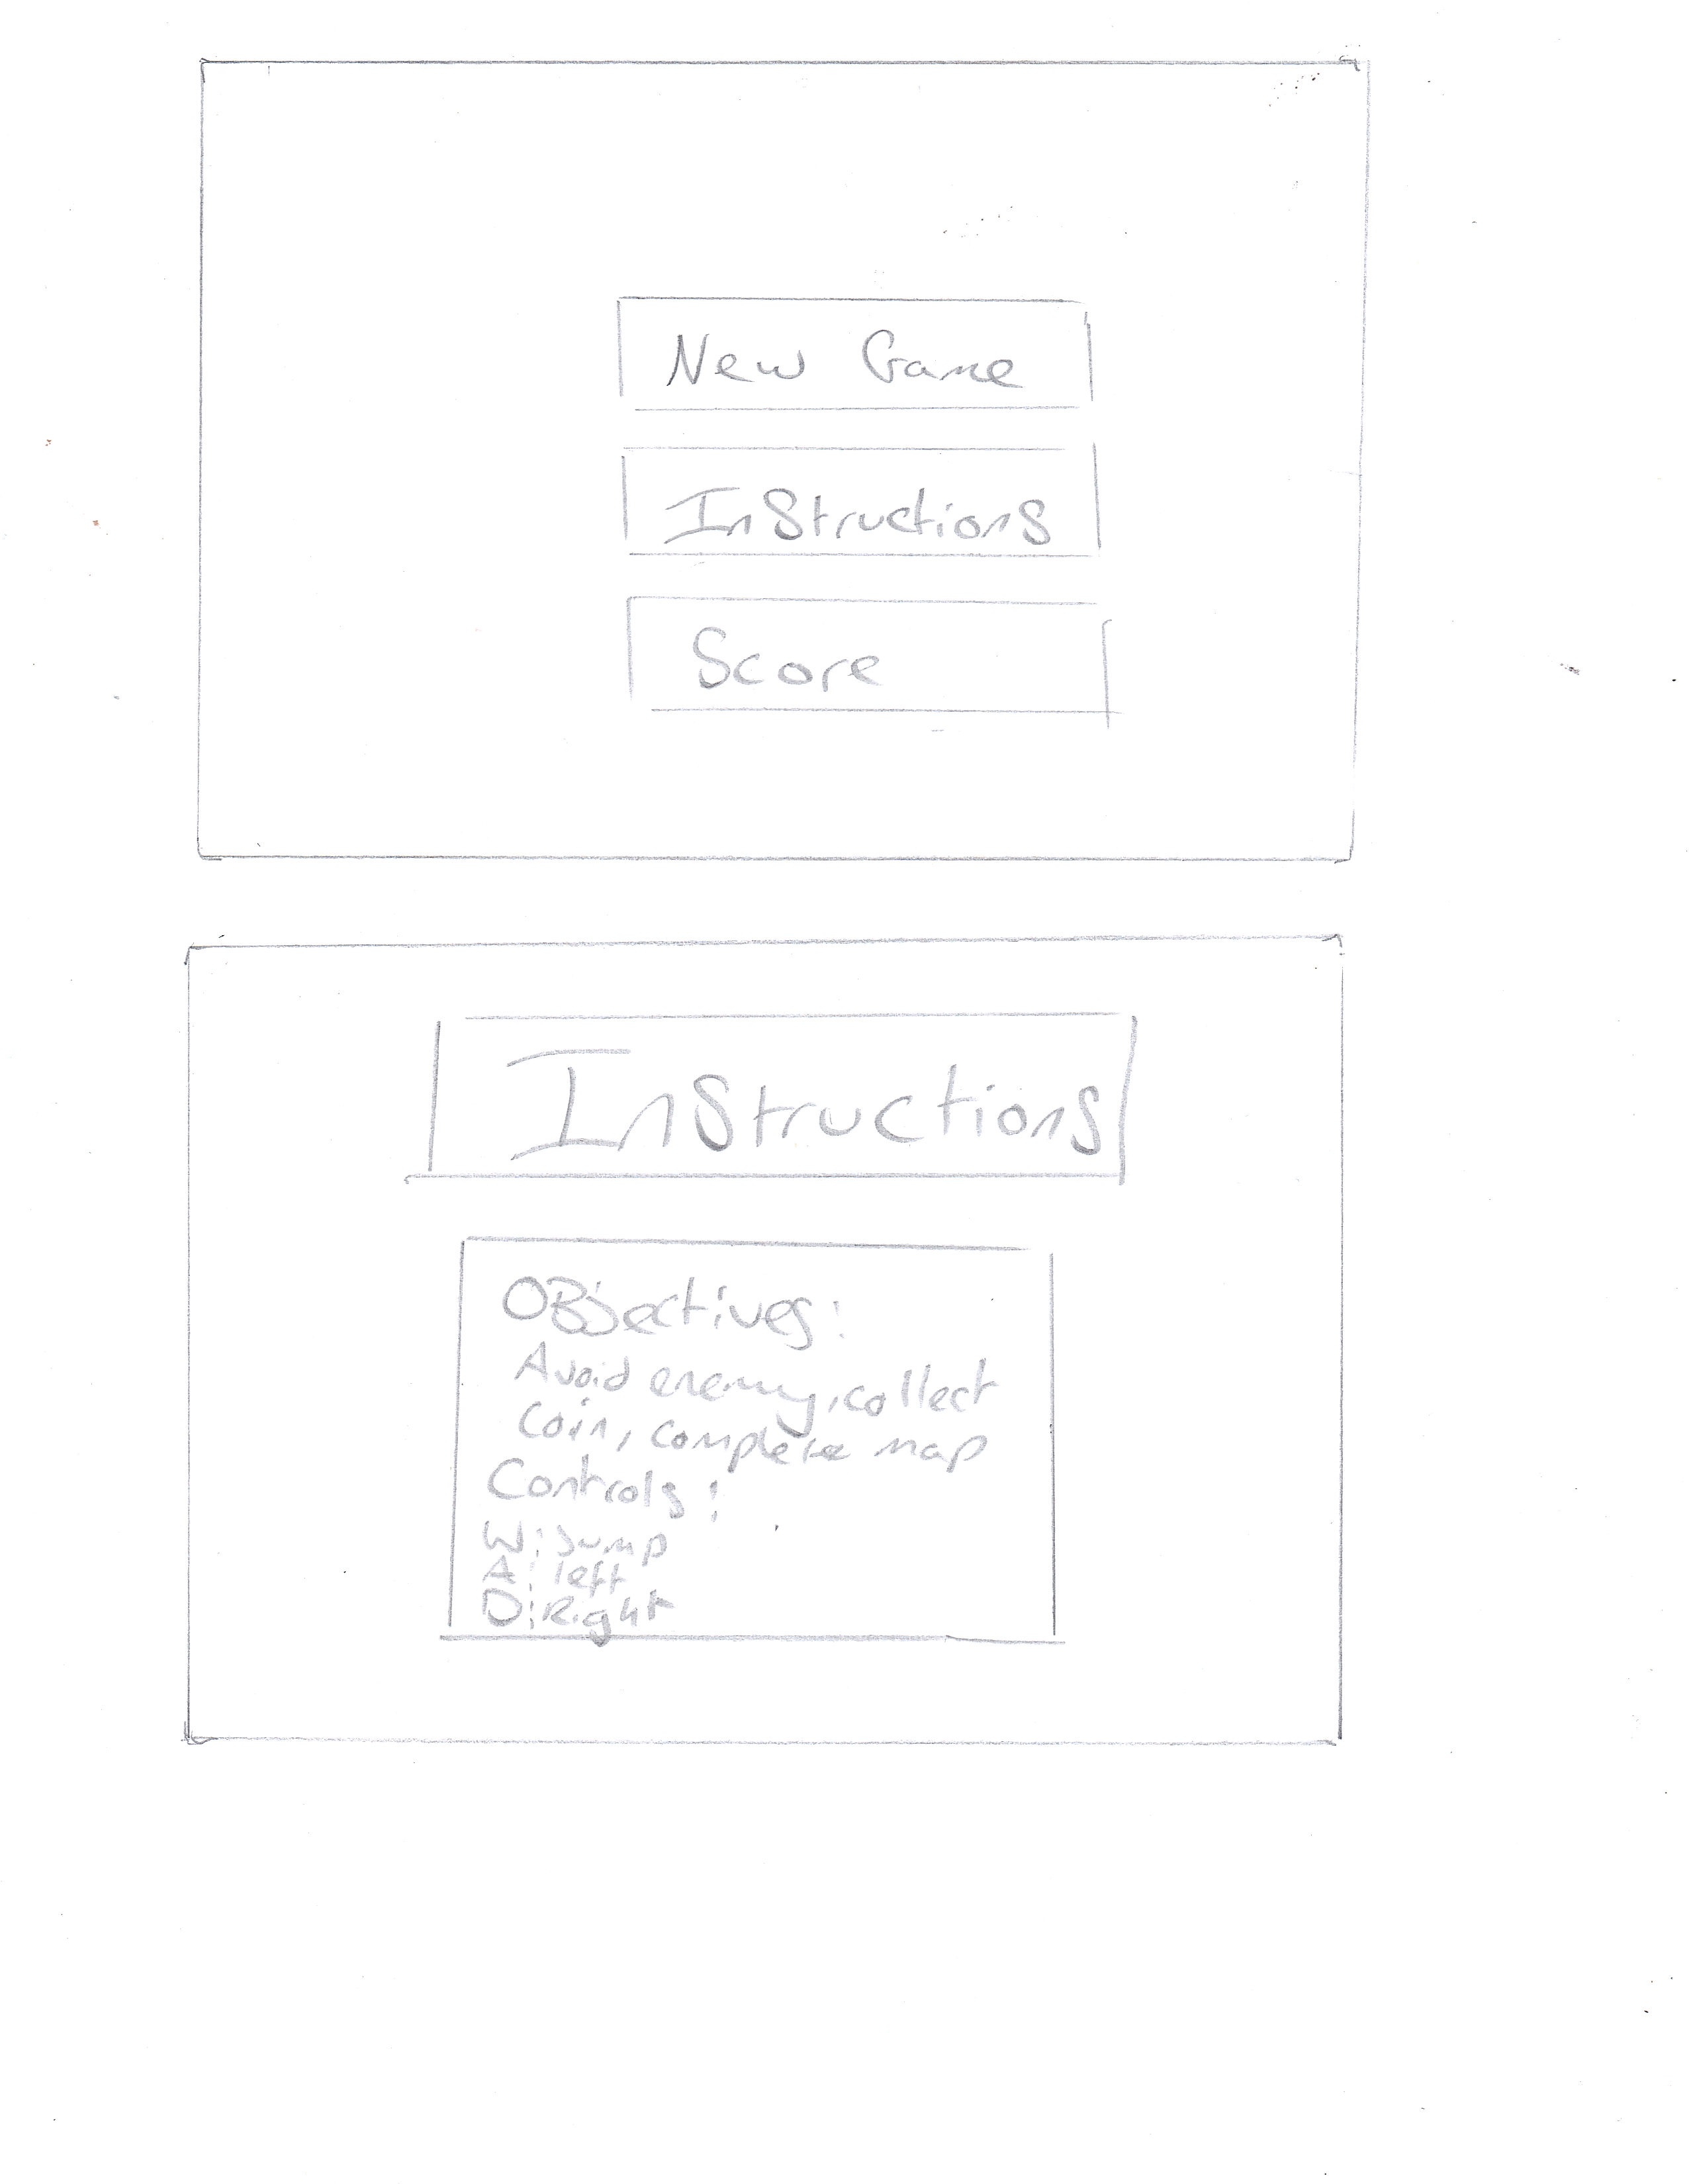 New Game
InStructions
Score
InStructions
OBjectives:
Avoid enemy, collect
Coin, complete map
Controls:
W: Jump
A: left
D: Right